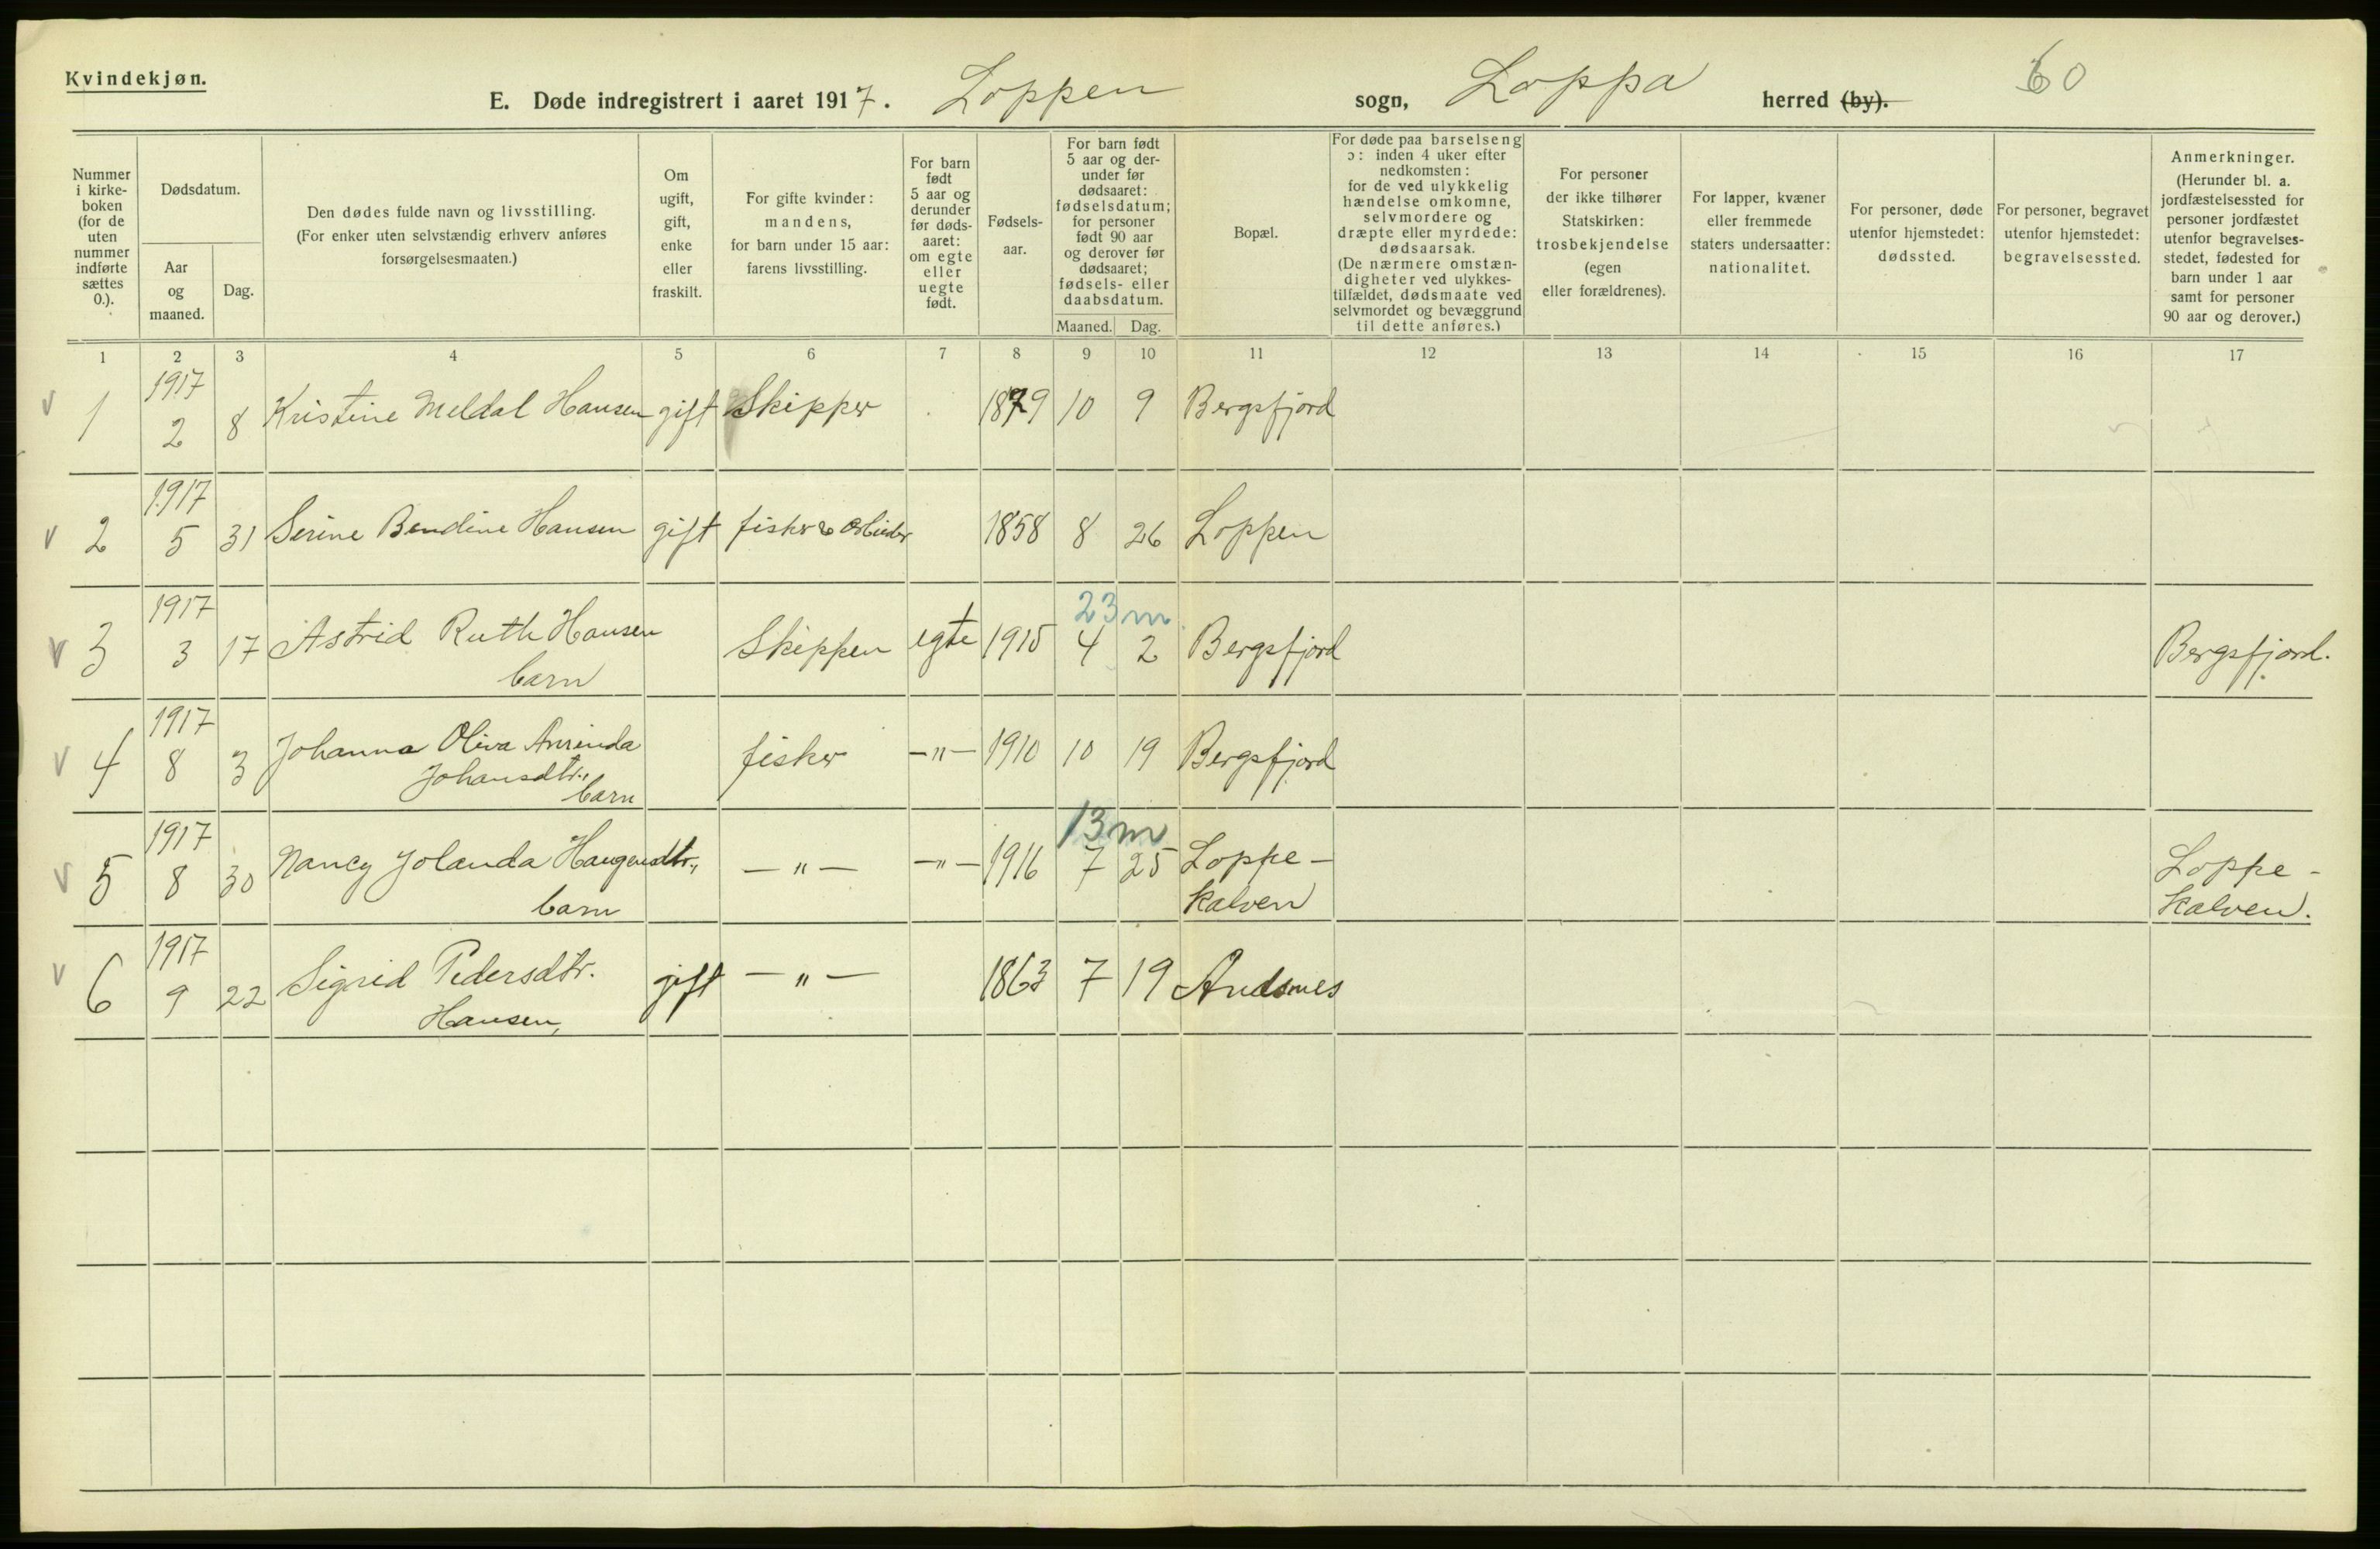 Kvindekjøn.
E. Døde indregistrert i aaret 1917. Loppen sogn, Loppa herred (by). 60
Nummer i kirkeboken (for de uten nummer indførte sættes 0.).
Dødsdatum.
Aar og maaned.
Dag.
Den dødes fulde navn og livsstilling. (For enker uten selvstændig erhverv anføres forsørgelsesmaaten.)
Om ugift, gift, enke eller fraskilt.
For gifte kvinder: mandens, for barn under 15 aar: farens livsstilling.
For barn født 5 aar og derunder før dødsaaret: om egte eller uegte født.
Fødselsaar.
For barn født 5 aar og derunder før dødsaaret: fødselsdatum; for personer født 90 aar og derover før dødsaaret; fødsels- eller daabsdatum.
Maaned.
Dag.
Bopæl.
For døde paa barselseng ɔ: inden 4 uker efter nedkomsten: for de ved ulykkelig hændelse omkomne, selvmordere og dræpte eller myrdede: dødsaarsak. (De nærmere omstændigheter ved ulykkestilfældet, dødsmaate ved selvmordet og bevæggrund til dette anføres.)
For personer der ikke tilhører Statskirken: trosbekjendelse (egen eller forældrenes).
For lapper, kvæner eller fremmede staters undersaatter: nationalitet.
For personer, døde utenfor hjemstedet: dødssted.
For personer, begravet utenfor hjemstedet: begravelsessted.
Anmerkninger. (Herunder bl. a. jordfæstelsessted for personer jordfæstet utenfor begravelsesstedet, fødested for barn under 1 aar samt for personer 90 aar og derover.)
1 2 3 4 5 6 7 8 9 10 11 12 13 14 15 16 17
1917
v 1 2 8 Kristine Meldal Hansen gift Skipper 1879 10 9 Bergsfjord
1917
v 2 5 31 Serine Bendine Hansen gift fisker 1858 8 26 Loppen
1917 23 m.
v 3 3 17 Astrid Ruth Hansen Skipper egte 1915 4 2 Bergsfjord Bergsfjord.
barn
1917
v 4 8 3 Johanna Oliva fisker —"— 1910 10 19 Bergsfjord
Johansdtr.,
barn
1917 13 m
v 5 8 30 Nancy Jolanda Haugensdtr., —"— —"— 1916 7 25 Loppe- Loppe-
barn kalven kalven.
1917
v 6 9 22 Sigrid Pedersdtr. gift —"— 1863 7 19 Andsnes
Hansen,